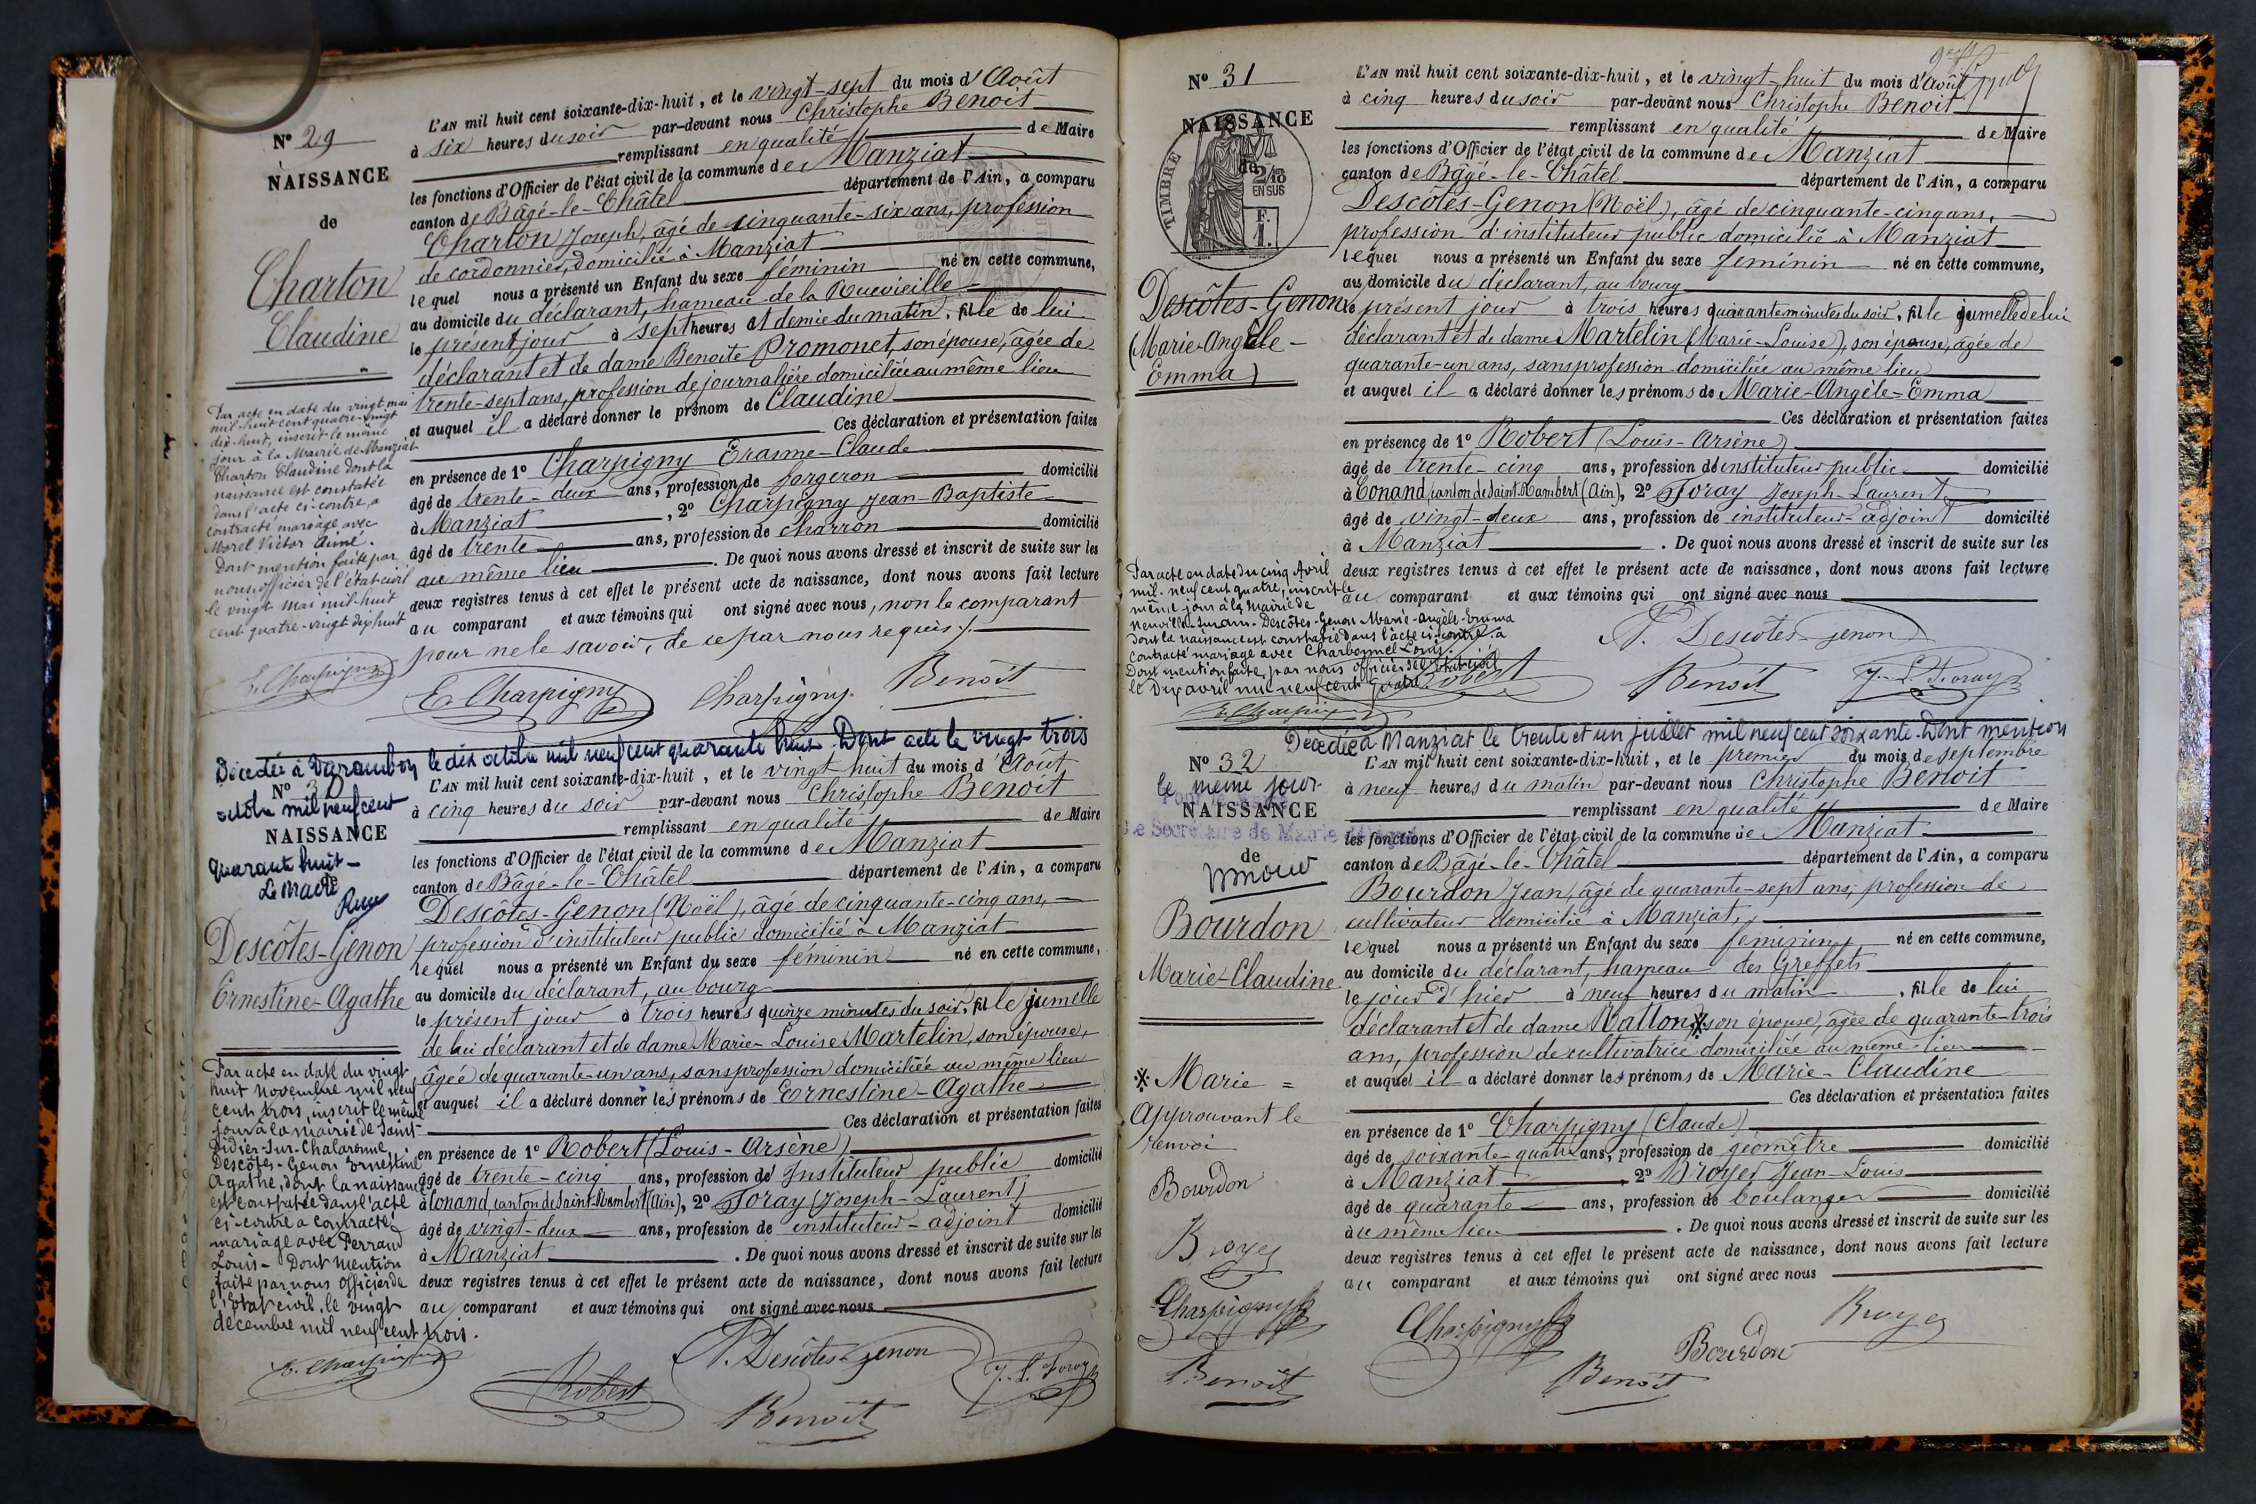 N° 29
NAISSANCE
de
Charton
Claudine
Par acte en date du vingt mai
mil huit cent quatre-vingt
dix-huit, inscrit le même
jour à la Mairie de Manziat
Charton Claudine dont la
naissance est constatée
dans l'acte ci-contre, a
contracté mariage avec
Morel Victor Aimé.
Dont mention faite par
nous officier de l'état-civil
le vingt mai mil-huit
cent quatre-vingt dix huit
E. Charpigny
L'AN mil huit cent soixante-dix-huit, et le vingt-sept du mois d'Août
à six heures du soir par-devant nous Christophe Benoit
remplissant en qualité de Maire
les fonctions d'Officier de l'état civil de la commune de Manziat
canton de Bâgé-le-Châtel département de l'Ain, a comparu
Charton Joseph, âgé de cinquante-six ans, profession
de cordonnier, domicilié à Manziat
lequel nous a présenté un Enfant du sexe féminin né en cette commune,
au domicile du déclarant, hameau de la Ruevieille
le présent jour à sept heures et demie du matin, fille de lui
déclarant et de dame Benoite Promonet, son épouse, âgée de
trente-sept ans, profession de journalière domiciliée au même lieu
et auquel il a déclaré donner le prénom de Claudine
Ces déclaration et présentation faites
en présence de 1° Charpigny Erasme-Claude
âgé de trente-deux ans, profession de forgeron domicilié
à Manziat, 2° Charpigny Jean-Baptiste
âgé de trente ans, profession de charron domicilié
au même lieu. De quoi nous avons dressé et inscrit de suite sur les
deux registres tenus à cet effet le présent acte de naissance, dont nous avons fait lecture
au comparant et aux témoins qui ont signé avec nous, non le comparant
pour ne le savoir, de ce par nous requis.
E. Charpigny Charpigny Benoit
Décédée à Varambon le dix octobre mil neuf cent quarante huit. Dont acte le vingt trois
octobre mil neuf cent
quarante huit
Le Maire
N° 30
NAISSANCE
de
Descôtes-Genon
Ernestine-Agathe
Par acte en date du vingt
huit novembre mil neuf
cent trois, inscrit le même
jour à la mairie de Saint-
Didier-sur-Chalaronne,
Descôtes-Genon Ernestine
Agathe, dont la naissance
est constatée dans l'acte
ci-contre a contracté
mariage avec Perraud
Louis - Dont mention
faite par nous officier de
l'Etat civil, le vingt
décembre mil neuf cent trois.
E. Charpigny
L'AN mil huit cent soixante-dix-huit, et le vingt huit du mois d'Août
à cinq heures du soir par-devant nous Christophe Benoit
remplissant en qualité de Maire
les fonctions d'Officier de l'état civil de la commune de Manziat
canton de Bâgé-le-Châtel département de l'Ain, a comparu
Descôtes-Genon (Noël), âgé de cinquante-cinq ans,
profession d'instituteur public domicilié à Manziat
lequel nous a présenté un Enfant du sexe féminin né en cette commune,
au domicile du déclarant, au bourg
le présent jour à trois heures quinze minutes du soir, fille jumelle
de lui déclarant et de dame Marie-Louise Martelin, son épouse,
âgée de quarante-un ans, sans profession domiciliée au même lieu
et auquel il a déclaré donner les prénoms de Ernestine-Agathe
Ces déclaration et présentation faites
en présence de 1° Robert (Louis-Arsène)
âgé de trente-cinq ans, profession d'Instituteur public domicilié
à Conand canton de Saint-Rambert (Ain), 2° Foray (Joseph-Laurent)
âgé de vingt-deux ans, profession de instituteur-adjoint domicilié
à Manziat. De quoi nous avons dressé et inscrit de suite sur les
deux registres tenus à cet effet le présent acte de naissance, dont nous avons fait lecture
au comparant et aux témoins qui ont signé avec nous
N. Descôtes-genon
Robert J. L. Foray
Benoit
N° 31
NAISSANCE
de
TIMBRE
2/10
EN SUS
F.
1.
Descôtes-Genon
(Marie-Angèle-
Emma)
Par acte en date du cinq Avril
mil-neuf cent quatre, inscrit le
même jour à la mairie de
Neuville-sur-Ain. Descôtes-Genon Marie-Angèle-Emma
dont la naissance est constatée dans l'acte ci-contre, a
contracté mariage avec Charbonnel Louis.
Dont mention faite par nous officier de l'Etat civil
le Dix avril mil neuf cent quatre
E. Charpigny
L'AN mil huit cent soixante-dix-huit, et le vingt-huit du mois d'Août
à cinq heures du soir par-devant nous Christophe Benoit
remplissant en qualité de Maire
les fonctions d'Officier de l'état civil de la commune de Manziat
canton de Bâgé-le-Châtel département de l'Ain, a comparu
Descôtes-Genon (Noël), âgé de cinquante-cinq ans,
profession d'instituteur public domicilié à Manziat
lequel nous a présenté un Enfant du sexe féminin né en cette commune,
au domicile du déclarant, au bourg
le présent jour à trois heures quarante minutes du soir, fille jumelle de lui
déclarant et de dame Martelin (Marie-Louise), son épouse, âgée de
quarante-un ans, sans profession domiciliée au même lieu
et auquel il a déclaré donner les prénoms de Marie-Angèle-Emma
Ces déclaration et présentation faites
en présence de 1° Robert (Louis-Arsène)
âgé de trente-cinq ans, profession d'instituteur public domicilié
à Conand, canton de Saint-Rambert (Ain), 2° Foray Joseph-Laurent
âgé de vingt-deux ans, profession de instituteur-adjoint domicilié
à Manziat. De quoi nous avons dressé et inscrit de suite sur les
deux registres tenus à cet effet le présent acte de naissance, dont nous avons fait lecture
au comparant et aux témoins qui ont signé avec nous
N. Descôtes-genon
Robert Benoit J. L. Foray
Décédée à Manziat le trente et un juillet mil neuf cent soixante. Dont mention
le même jour
N° 32
NAISSANCE
de
Le Secrétaire de Mairie
Bourdon
Marie-Claudine
Marie =
Approuvant le
renvoi
Bourdon
Broyer
Charpigny
Benoit
L'AN mil huit cent soixante-dix-huit, et le premier du mois de septembre
à neuf heures du matin par-devant nous Christophe Benoit
remplissant en qualité de Maire
les fonctions d'Officier de l'état civil de la commune de Manziat
canton de Bâgé-le-Châtel département de l'Ain, a comparu
Bourdon Jean, âgé de quarante-sept ans, profession de
cultivateur domicilié à Manziat,
lequel nous a présenté un Enfant du sexe féminin né en cette commune,
au domicile du déclarant, hameau des Greffets
le jour d'hier à neuf heures du matin, fille de lui
déclarant et de dame Catton, son épouse, âgée de quarante-trois
ans, profession de cultivatrice domiciliée au même lieu
et auquel il a déclaré donner les prénoms de Marie-Claudine
Ces déclaration et présentation faites
en présence de 1° Charpigny (Claude)
âgé de soixante-quatre ans, profession de géomètre domicilié
à Manziat, 2° Broyer Jean-Louis
âgé de quarante ans, profession de boulanger domicilié
au même lieu. De quoi nous avons dressé et inscrit de suite sur les
deux registres tenus à cet effet le présent acte de naissance, dont nous avons fait lecture
au comparant et aux témoins qui ont signé avec nous
Charpigny Bourdon Broyer
Benoit